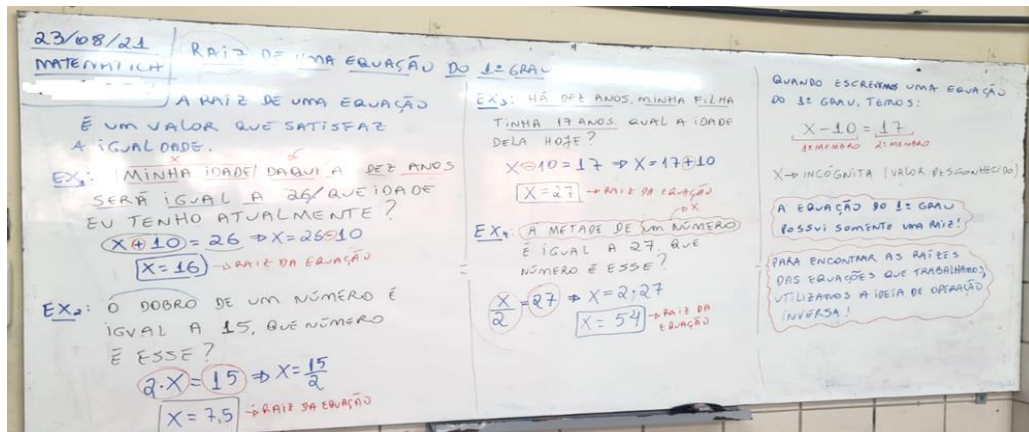 23/08/21
MATEMÁTICA
RAIZ DE UMA EQUAÇÃO DO 1º GRAU
A RAIZ DE UMA EQUAÇÃO
É UM VALOR QUE SATISFAZ
A IGUALDADE.
X
EX1: MINHA IDADE DAQUI A DEZ ANOS
SERÁ IGUAL A 26, QUE IDADE
EU TENHO ATUALMENTE?
X + 10 = 26 ⇒ X = 26 - 10
X = 16 → RAIZ DA EQUAÇÃO
EX2: O DOBRO DE UM NÚMERO É
IGUAL A 15, QUE NÚMERO
É ESSE?
2·X = 15 ⇒ X = 15/2
X = 7,5 → RAIZ DA EQUAÇÃO
EX3: HÁ DEZ ANOS, MINHA FILHA
TINHA 17 ANOS. QUAL A IDADE
DELA HOJE?
X - 10 = 17 ⇒ X = 17 + 10
X = 27 → RAIZ DA EQUAÇÃO
→ X
EX4: A METADE DE UM NÚMERO
É IGUAL A 27. QUE
NÚMERO É ESSE?
X/2 = 27 ⇒ X = 2·27
X = 54 → RAIZ DA
EQUAÇÃO
QUANDO ESCREVEMOS UMA EQUAÇÃO
DO 1º GRAU, TEMOS:
X - 10 = 17
1º MEMBRO 2º MEMBRO
X → INCÓGNITA (VALOR DESCONHECIDO)
A EQUAÇÃO DO 1º GRAU
POSSUI SOMENTE UMA RAIZ!
PARA ENCONTRAR AS RAÍZES
DAS EQUAÇÕES QUE TRABALHAMOS,
UTILIZAMOS A IDEIA DE OPERAÇÃO
INVERSA!